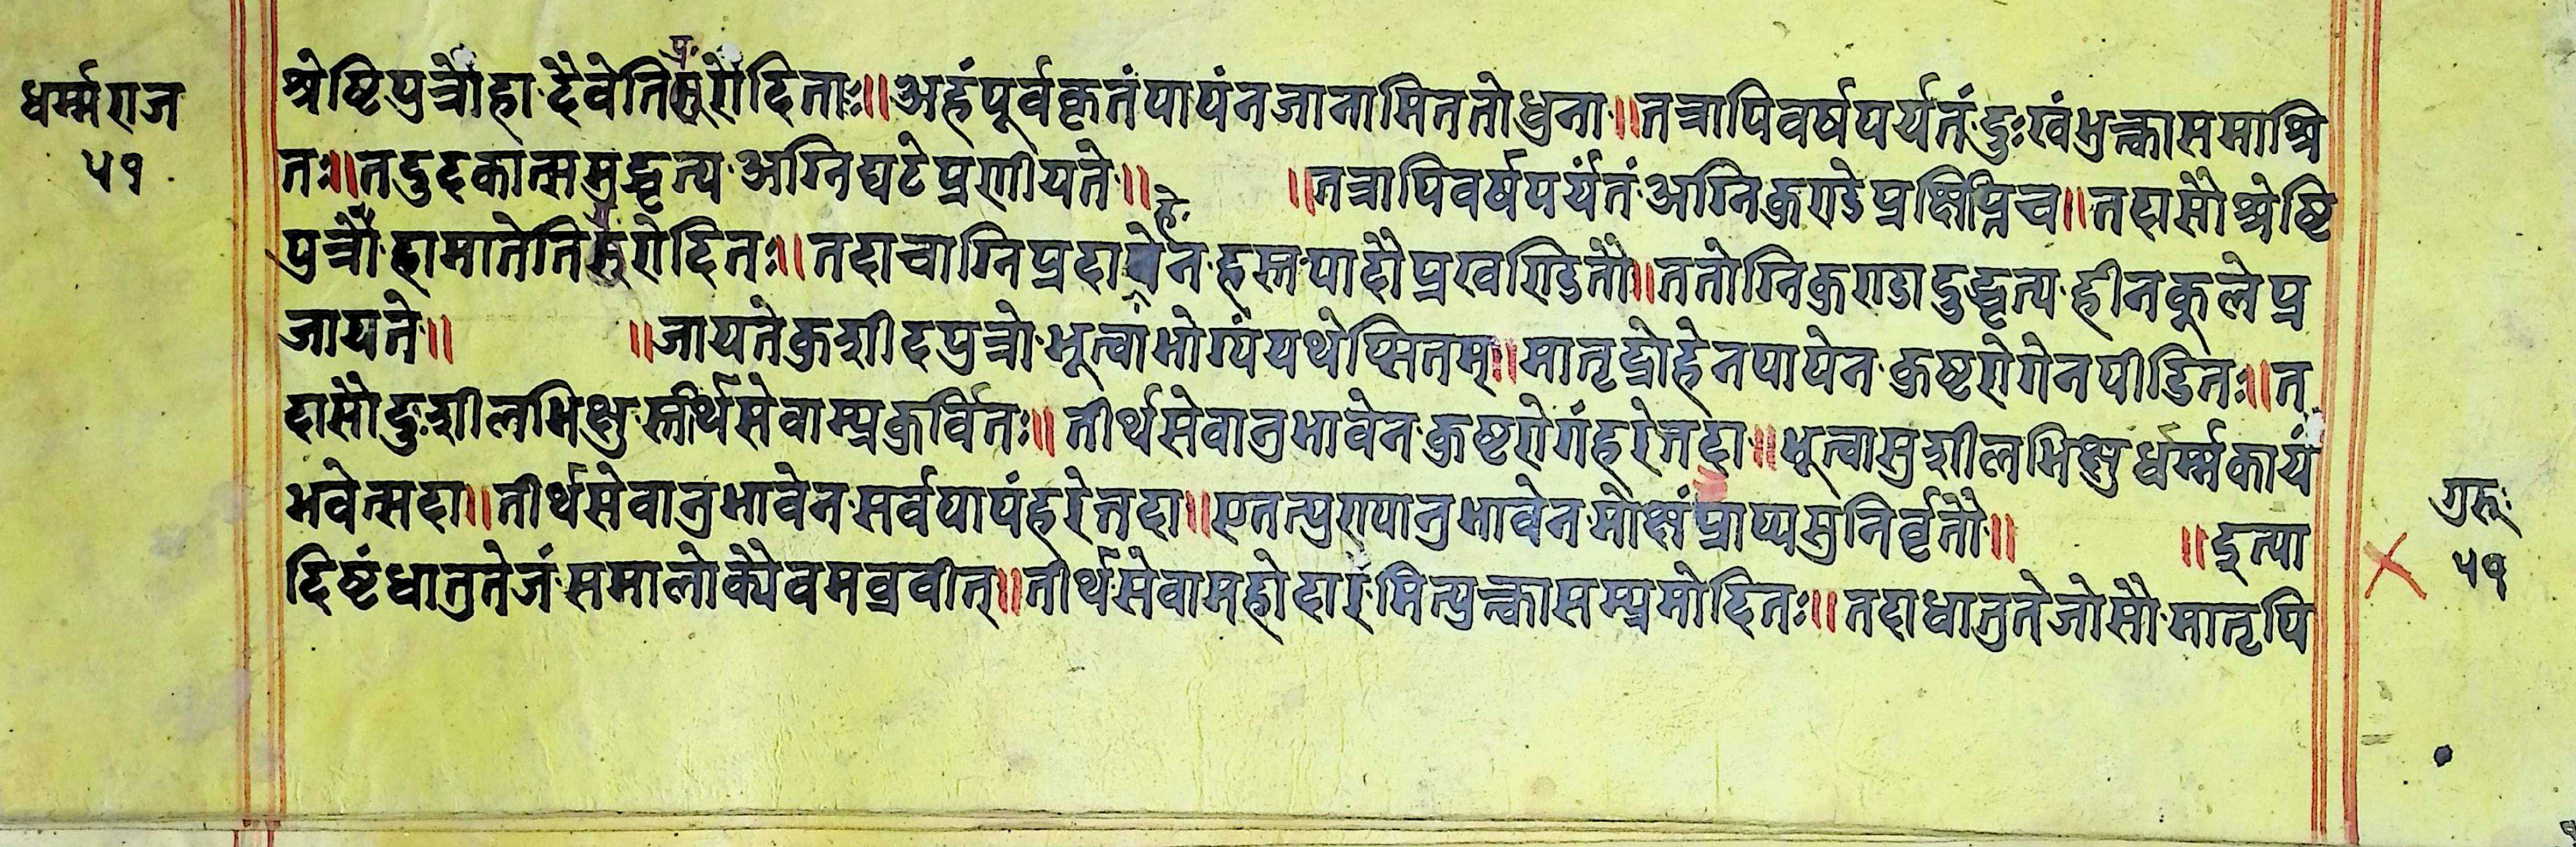 धर्म्मराज
५१
श्रेष्टिपुत्रौ हा दैवेति प्ररोदिताः॥ अहं पूर्वकृतं पापं न जानामि ततोधुना॥ तत्रापि वर्षपर्यतं दुःखं भुक्त्वा समाश्रि
तः॥ तदुदकात्समुद्धृत्य अग्निघटे प्रणीयते॥ ॥ तत्रापि वर्षपर्यंतं अग्निकुण्डे प्रक्षिप्नि च॥ तदासौ श्रेष्टि
पुत्रौ हा मातेति प्ररोदितः॥ तदा चाग्निप्रदाहेन हस्तपादौ प्रखण्डितौ॥ ततोग्निकुण्डादुद्धृत्य हीनकुले प्र
जायते॥ ॥ जायते कुशीदपुत्रो भूत्वा भोग्यं यथेप्सितम्॥ मातृद्रोहेन पापेन कुष्टरोगेन पीडितः॥ त
दासौ दुःशीलभिक्षु स्तीर्थसेवाम्प्रकुर्वितः॥ तीर्थसेवानुभावेन कुष्टरोगं हरेत्तदा॥ भूत्वा सुशीलभिक्षु र्धर्म्मकायं
भवेत्सदा॥ तीर्थसेवानुभावेन सर्वपापं हरेत्तदा॥ एतत्पुण्यानुभावेन मोक्षं प्राप्य सुनिर्वृतौ॥ ॥ इत्या
दिष्टं धातुतेजं समालोक्यैवमब्रवीत्॥ तीर्थसेवामहोदारमित्युक्त्वा सम्प्रमोदितः॥ तदा धातुतेजोसौ मातृपि
गुरूः
५१